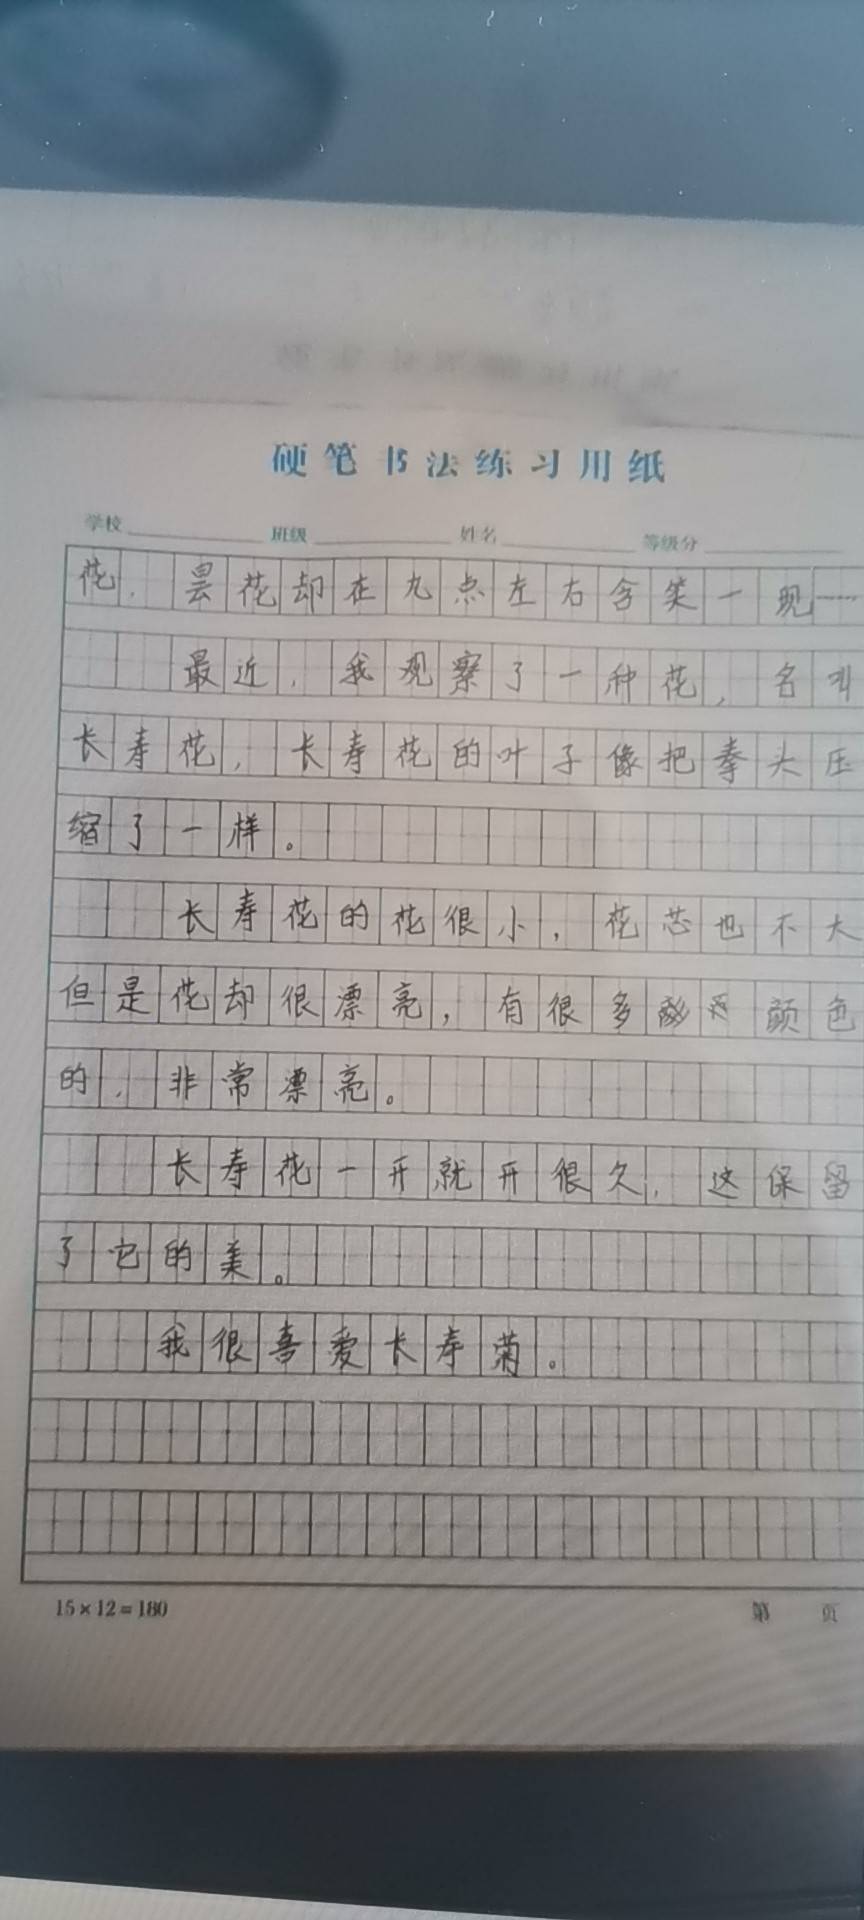 硬笔书法练习用纸
学校 班级 姓名 等级分
花，昙花却在九点左右含笑一现……
最近，我观察了一种花，名叫
长寿花，长寿花的叶子像把拳头压
缩了一样。
长寿花的花很小，花芯也不大
但是花却很漂亮，有很多颜色
的，非常漂亮。
长寿花一开就开很久，这保留
了它的美。
我很喜爱长寿菊。
15×12=180
第 页